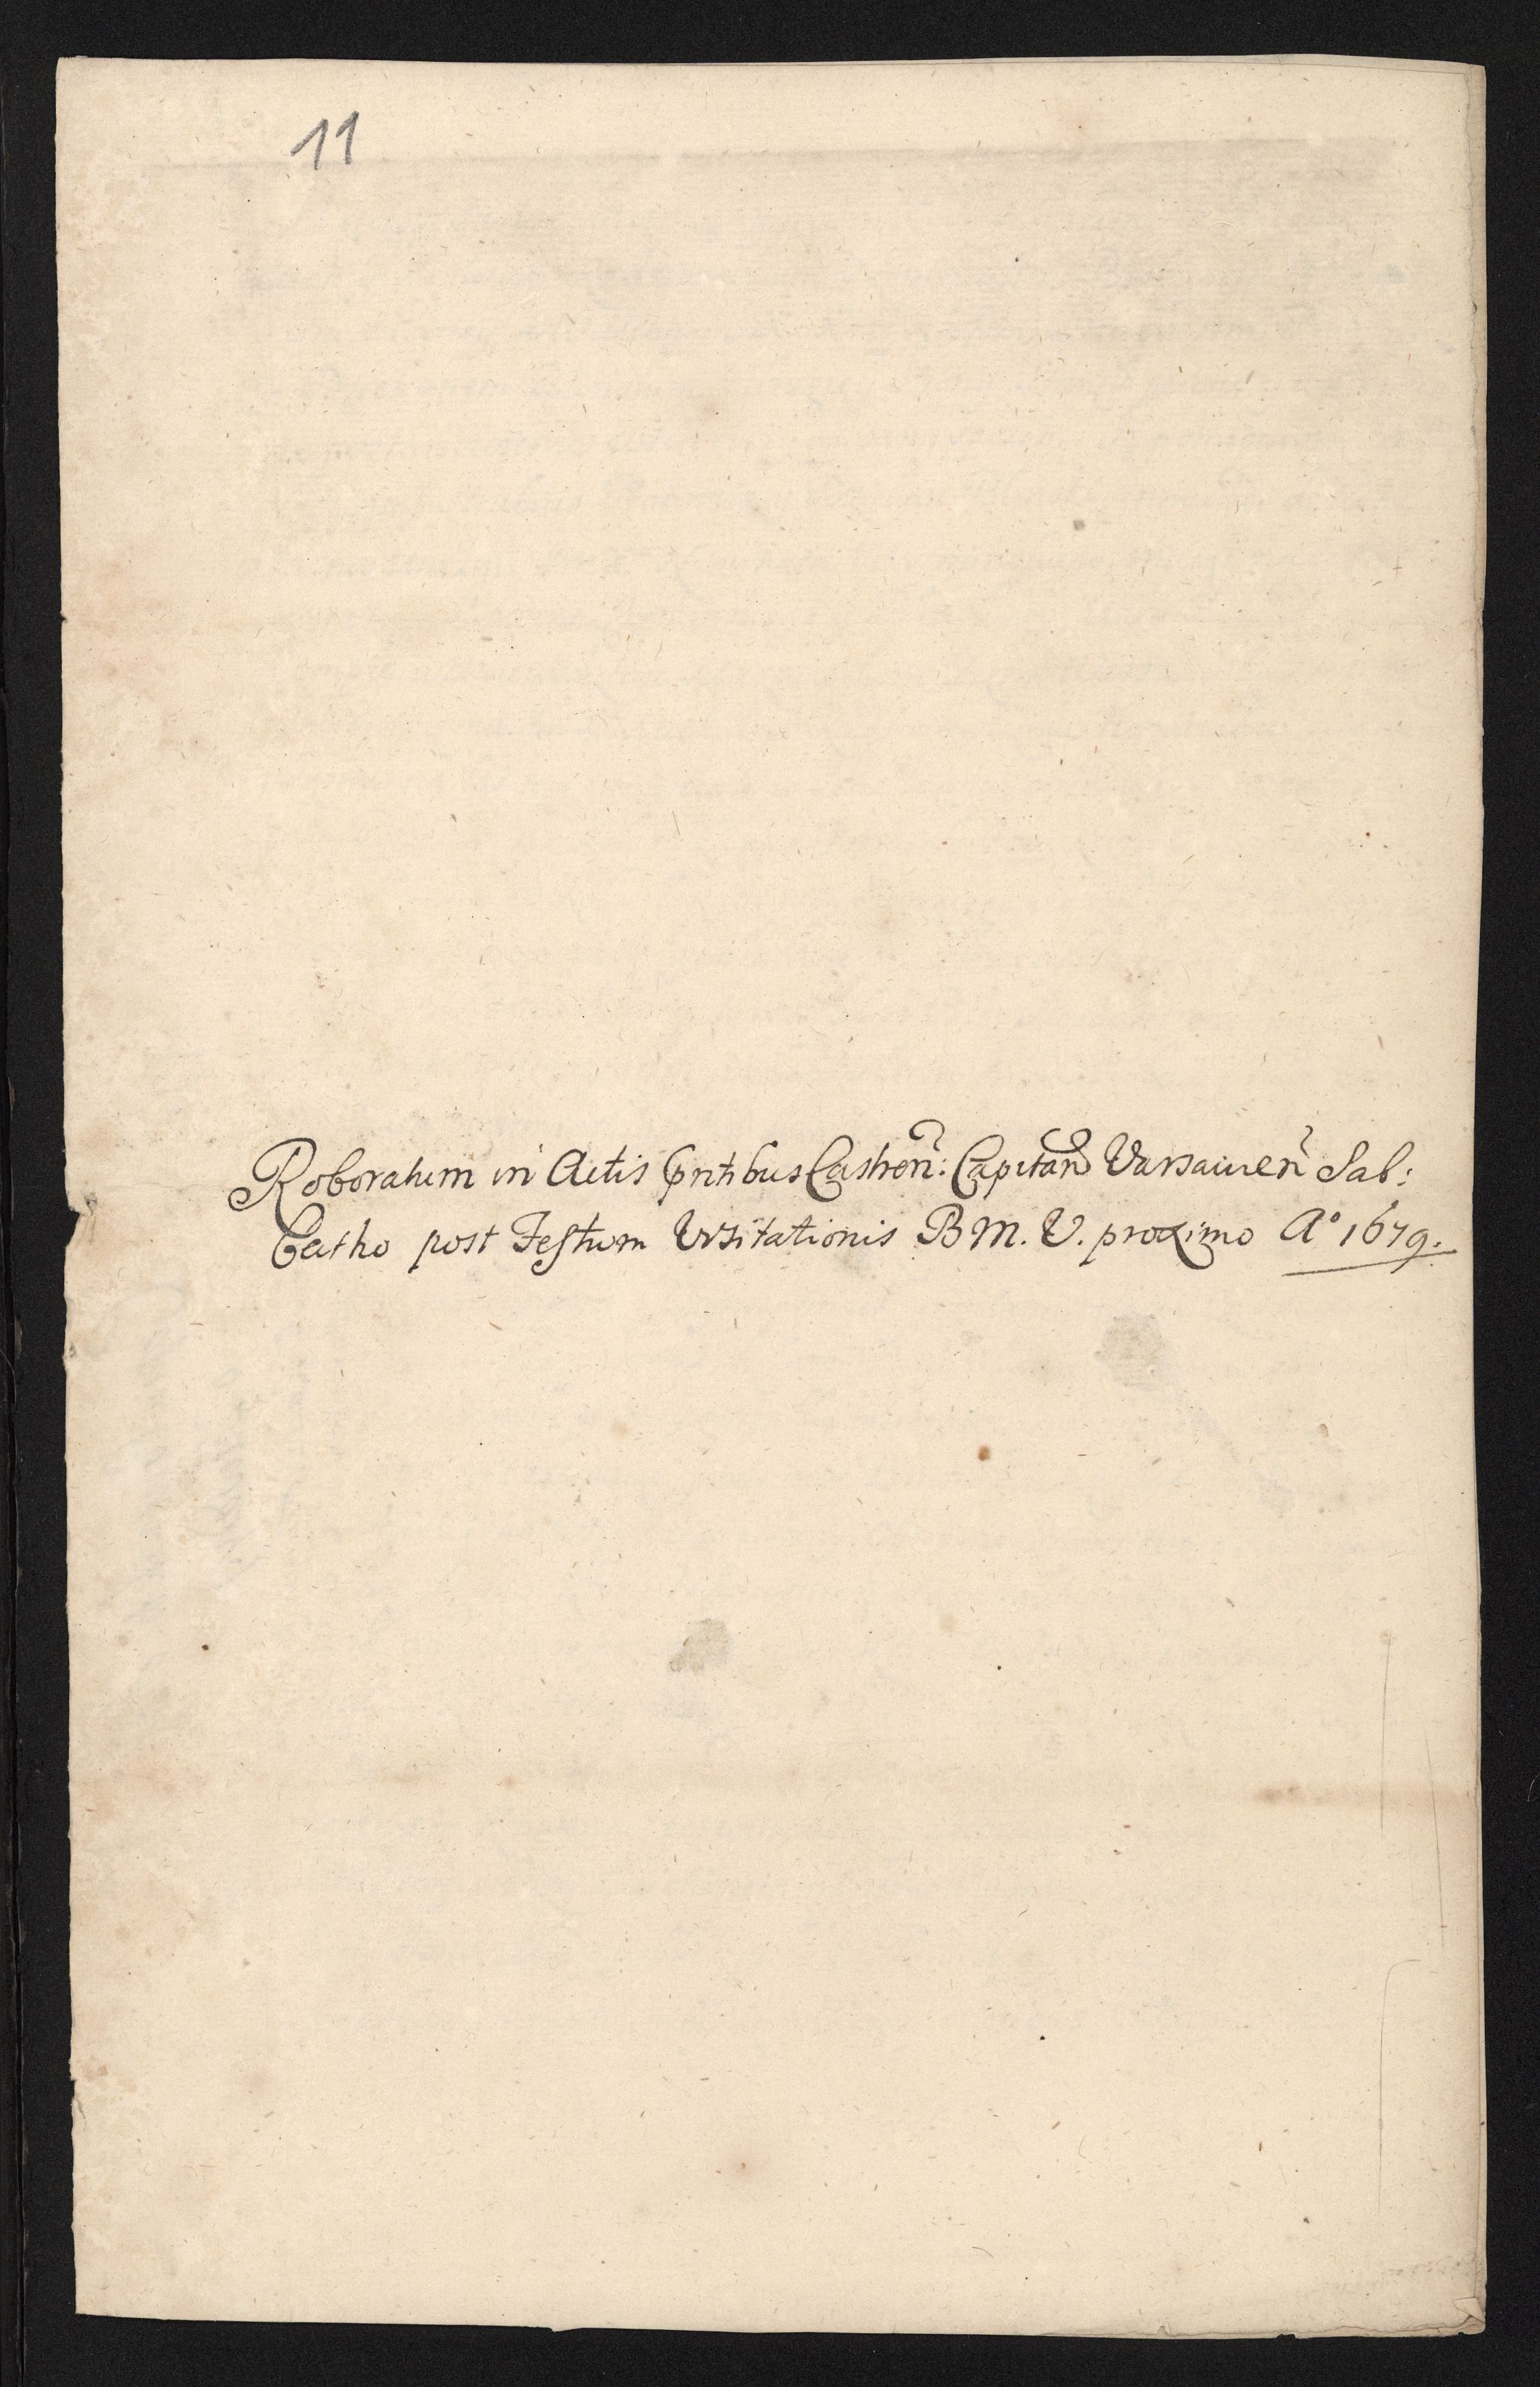 11
Roboratum in Actis Pntibus Castren: Capitan Varsauien Sab:
batho post Festum Visitationis B M. V. proximo A° 1679.